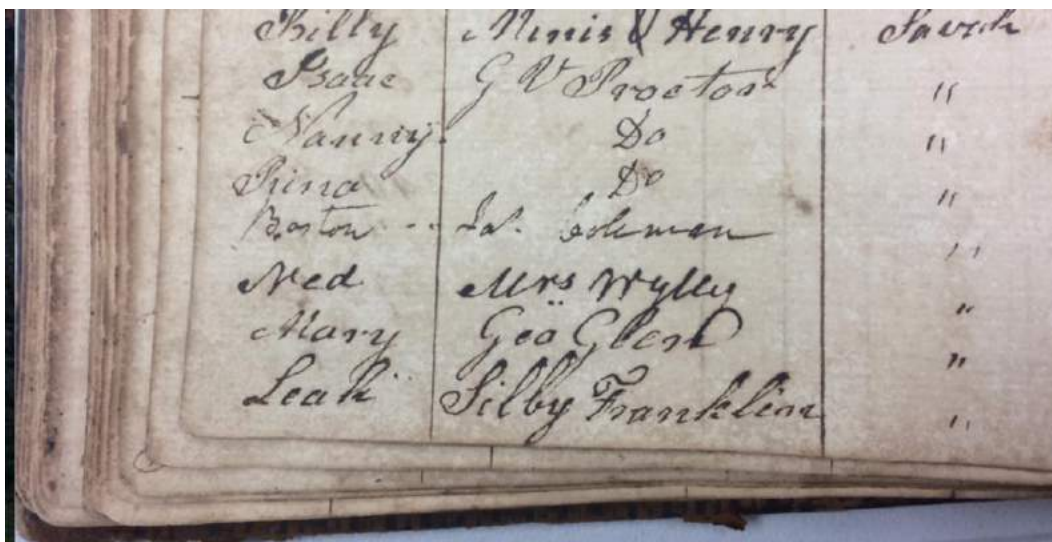 Billy Minis & Henry Savah
Isaac G V Proctor "
Nanny. Do "
Prina Do "
Boston -- Coleman "
Ned Mrs Wylly "
Mary Geo Glen "
Leah Silby Franklin "